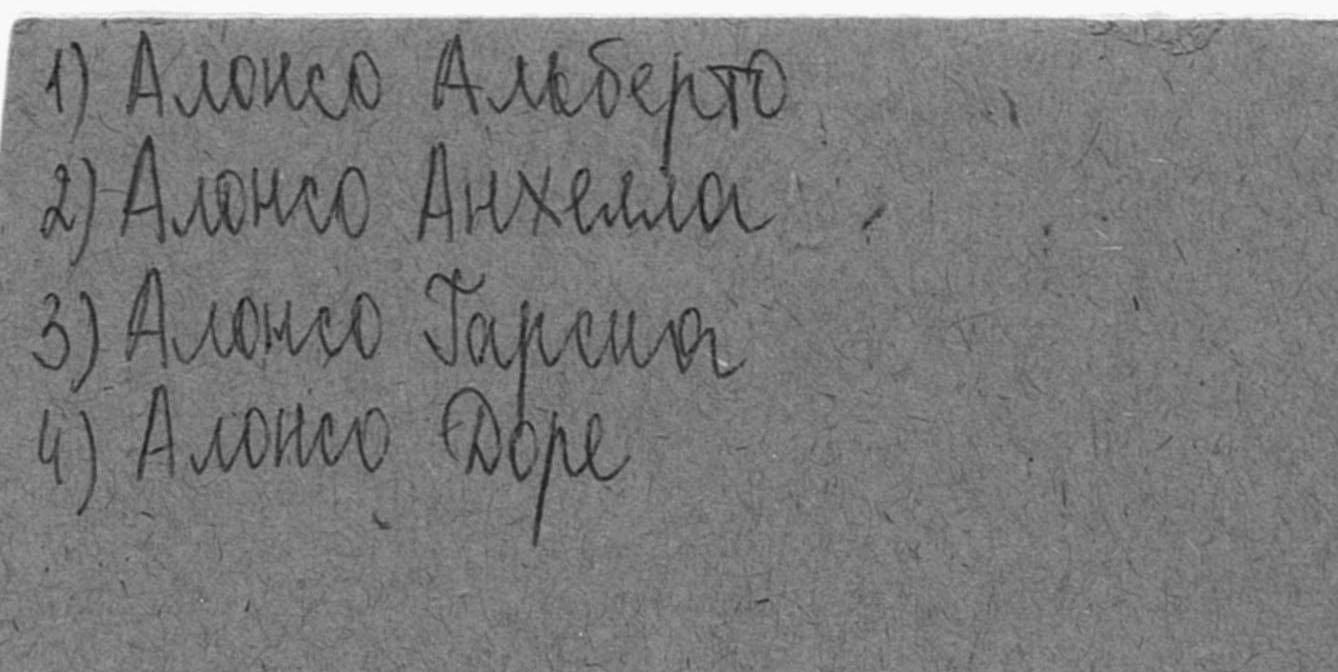 1) Алонсо Альберто
2) Алонсо Анхелла
3) Алонсо Гарсиа
4) Алонсо Доре